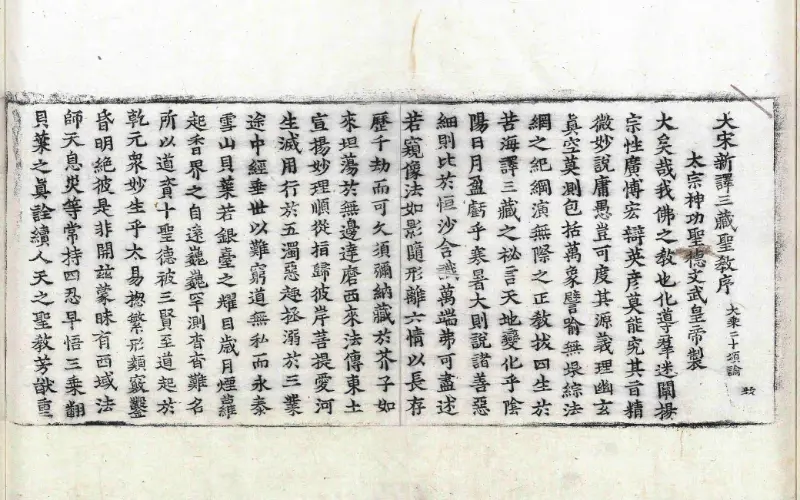 大宋新譯三藏聖教序
大乘二十頌論
太宗神功聖德文武皇帝製
大矣哉我佛之教也化導群迷闡揚
宗性廣博宏辯英彦莫能究其旨精
微妙說庸愚豈可度其源義理幽玄
真空莫測包括萬象譬喻無垠綜法
網之紀綱演無際之正教拔四生於
苦海譯三藏之祕言天地變化乎陰
陽日月盈虧乎寒暑大則說諸善惡
細則比於恒沙含識萬端弗可盡述
若窺像法如影隨形離六情以長存
歷千劫而可久須彌納藏於芥子如
來坦蕩於無邊達磨西來法傳東土
宣揚妙理順從指歸彼岸菩提愛河
生滅用行於五濁惡趣拯溺於三業
途中經垂世以難窮道無私而永泰
雪山貝葉若銀臺之耀目歲月煙蘿
起香界之自遠巍巍罕測杳杳難名
所以道資十聖德被三賢至道起於
乾元衆妙生乎太易揔繁形類竅鑿
昏明絶彼是非開茲蒙昧有西域法
師天息災等常持四忍早悟三乘翻
貝葉之真詮續人天之聖教芳猷重